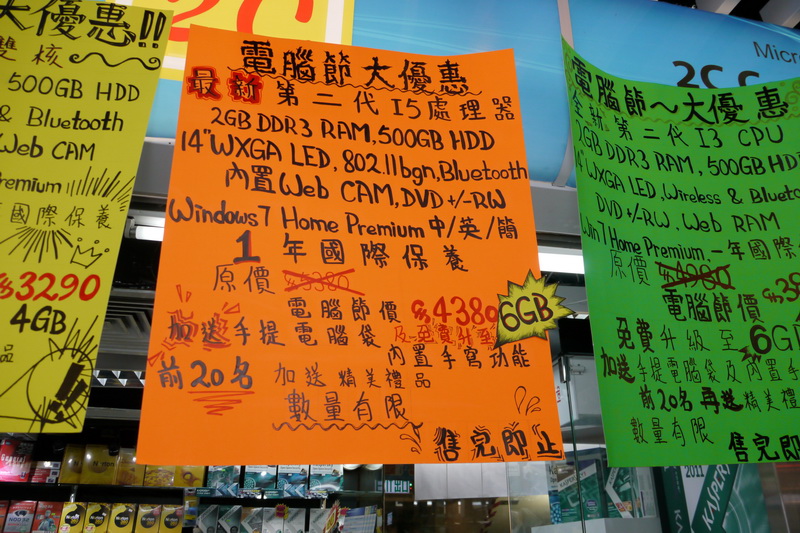 大優惠!!
雙核
500GB HDD
& Bluetooth
Web CAM
Premium
國際保養
3290
4GB
品
電腦節大優惠
最新 第二代 I5處理器
2GB DDR3 RAM, 500GB HDD
14" WXGA LED, 802.11bgn, Bluetooth
內置 Web CAM, DVD +/-RW
Windows 7 Home Premium 中/英/簡
1年國際保養
原價 $5380
電腦節價 $4380
6GB
加送手提電腦袋 及免費升至
內置手寫功能
前20名 加送精美禮品
數量有限
售完即止
Micro
電腦節~大優惠
全新第二代 I3 CPU
2GB DDR3 RAM, 500GB HD
14" WXGA LED, Wireless & Blueto
DVD +/-RW, Web RAM
Win 7 Home Premium, 一年國際
原價 $4980
電腦節價
免費升級至 6G
加送手提電腦袋及內置手
前20名再送精美禮
數量有限
售完即
2011
KASPER